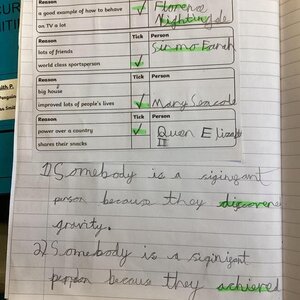 Reason Tick Person
a good example of how to behave ✓ Florence
on TV a lot Nightingale
Reason Tick Person
lots of friends Sir mo Farah
world class sportsperson ✓
Reason Tick Person
big house
improved lots of people's lives ✓ Mary Seacole
Reason Tick Person
power over a country ✓ Quen Elizab
shares their snacks II
1) Somebody is a siginegant
person because they discovere
gravity.
2) Somebody is a siginigant
person becaus they achieved